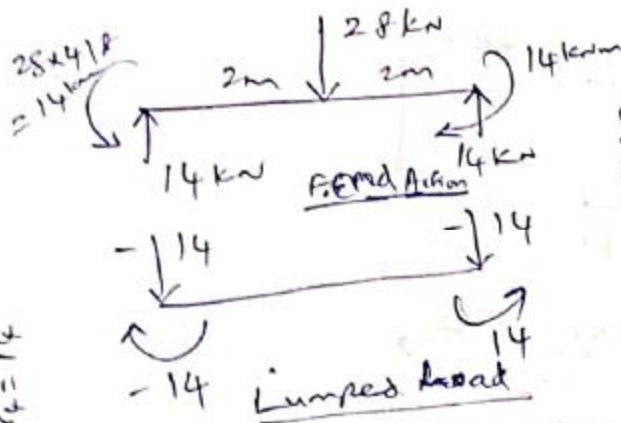 28 kN
28x4/8
= 14 knm
2m 2m
14 knm
14 kN
14 kN
F.End Action
- 14
- 14
- 14
14
Lumped Load